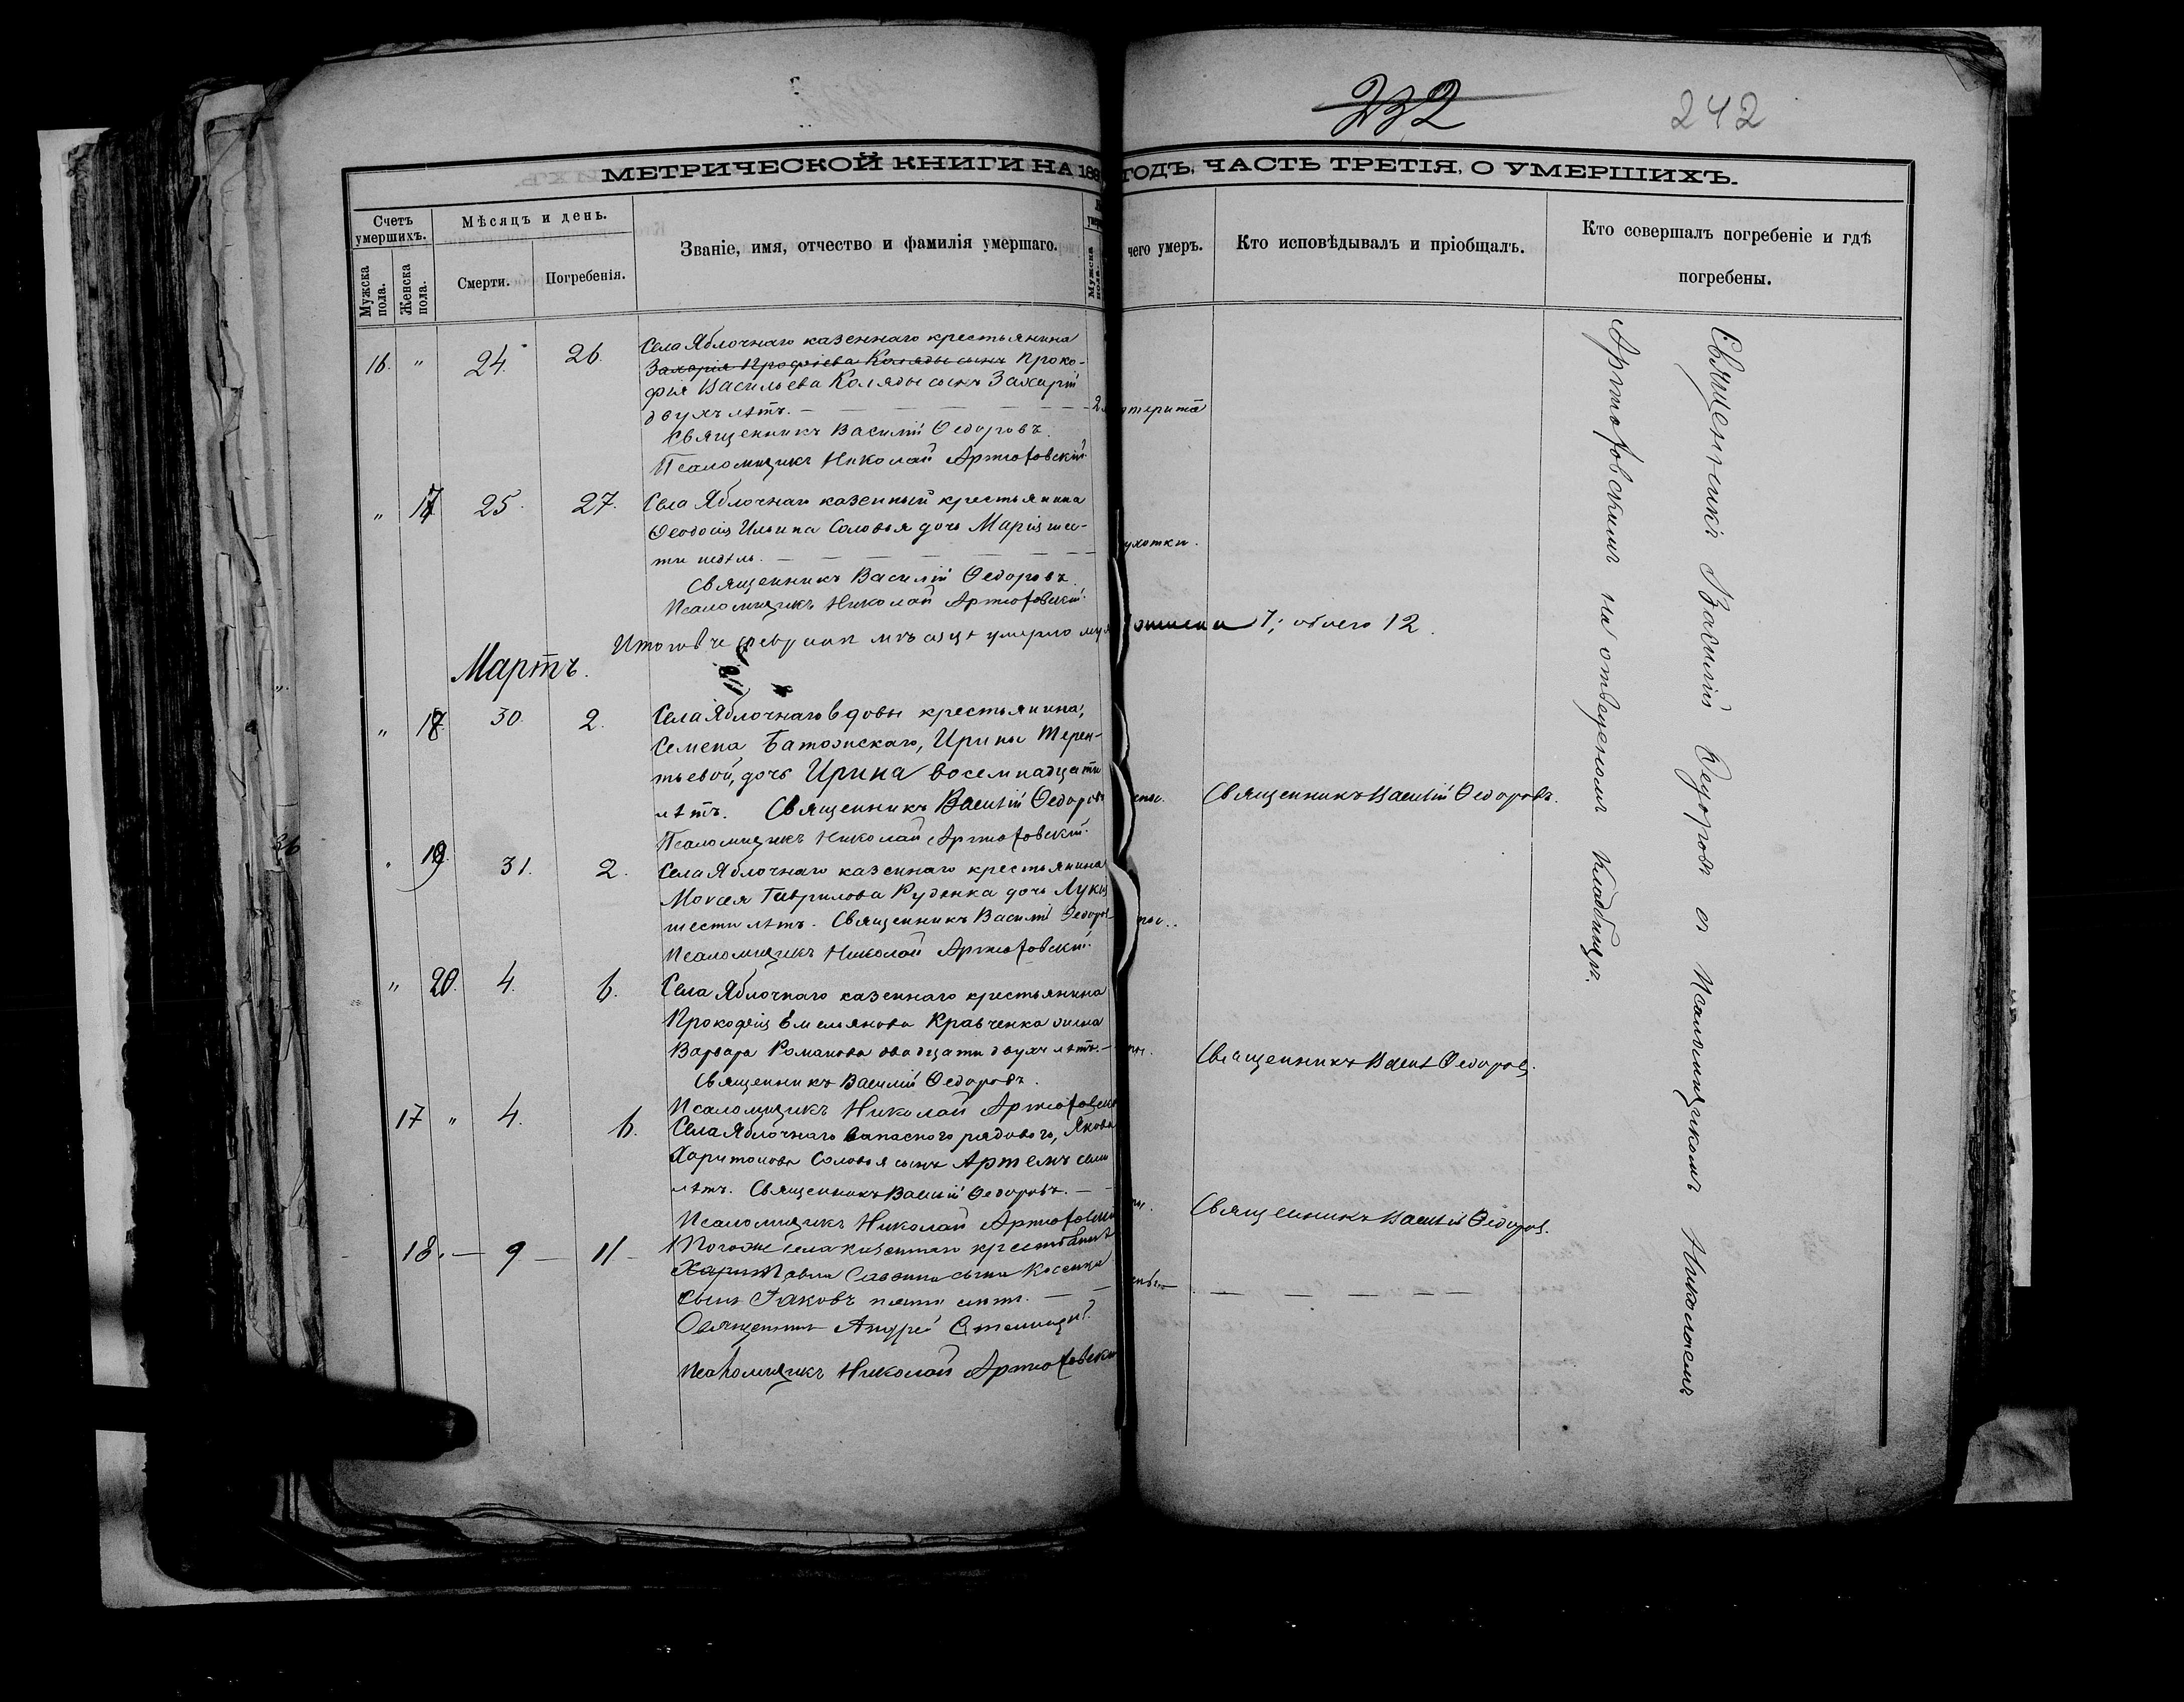 232
242
МЕТРИЧЕСКОЙ КНИГИ НА 188 ГОДЪ, ЧАСТЬ ТРЕТІЯ, О УМЕРШИХЪ.
Счетъ умершихъ.
Мѣсяцъ и день.
Званіе, имя, отчество и фамилія умершаго.
чего умеръ.
Кто исповѣдывалъ и пріобщалъ.
Кто совершалъ погребеніе и гдѣ
погребены.
Мужска пола.
Женска пола.
Смерти.
Погребенія.
Мужска пола.
16. " 24. 26. Села Яблочнаго казеннаго крестьянина
Захарія Профіева Коляды сынъ Проко-
фія Васильева Коляды сынъ Захарій
двухъ лѣтъ. 2
Священникъ Василій Ѳедоровъ.
Псаломщикъ Николай Артюховскій.
" 17 25. 27. Села Яблочнаго казенный крестьянина
Ѳеодосія Ильина Соловья дочь Марія шес-
ти недѣль.
Священникъ Василій Ѳедоровъ.
Псаломщикъ Николай Артюховскій.
умерло 7; обоего 12.
Мартъ.
" 18. 30. 2. Села Яблочнаго вдовы крестьянина,
Семена Батожскаго, Ирины Терен-
тьевой, дочь Ирина восемнадцати
лѣтъ. Священникъ Василій Ѳедоровъ
Священникъ Василій Ѳедоровъ.
Псаломщикъ Николай Артюховскій.
" 19. 31. 2. Села Яблочнаго казеннаго крестьянина
Моисея Гаврилова Руденка дочь Лукія
шести лѣтъ. Священникъ Василій Ѳедоров
Псаломщикъ Николай Артюховскій.
" 20. 4. 6. Села Яблочнаго казеннаго крестьянина
Прокофія Емельянова Кравченка жена
Варвара Романова двадцати двухъ лѣтъ.
Священникъ Васил Ѳедоровъ.
Священникъ Василій Ѳедоровъ.
Псаломщикъ Николай Артюховскій
17 " 4. 6. Села Яблочнаго запаснаго рядового, Якова
Харитонова Соловья сынъ Артемъ семи
лѣтъ. Священникъ Василій Ѳедоровъ.
Священникъ Василій Ѳедоров.
Псаломщикъ Николай Артюховскій
18. 9 11 Того же села казеннаго крестьянина
Павла Саввина сына
сынъ Іаковъ пяти лѣтъ.
Священникъ Андрей
Псаломщикъ Николай Артюховскій
Священникъ Василій Ѳедоровъ съ Псаломщикомъ Николаемъ
Артюховскимъ на отведенномъ кладбищѣ.